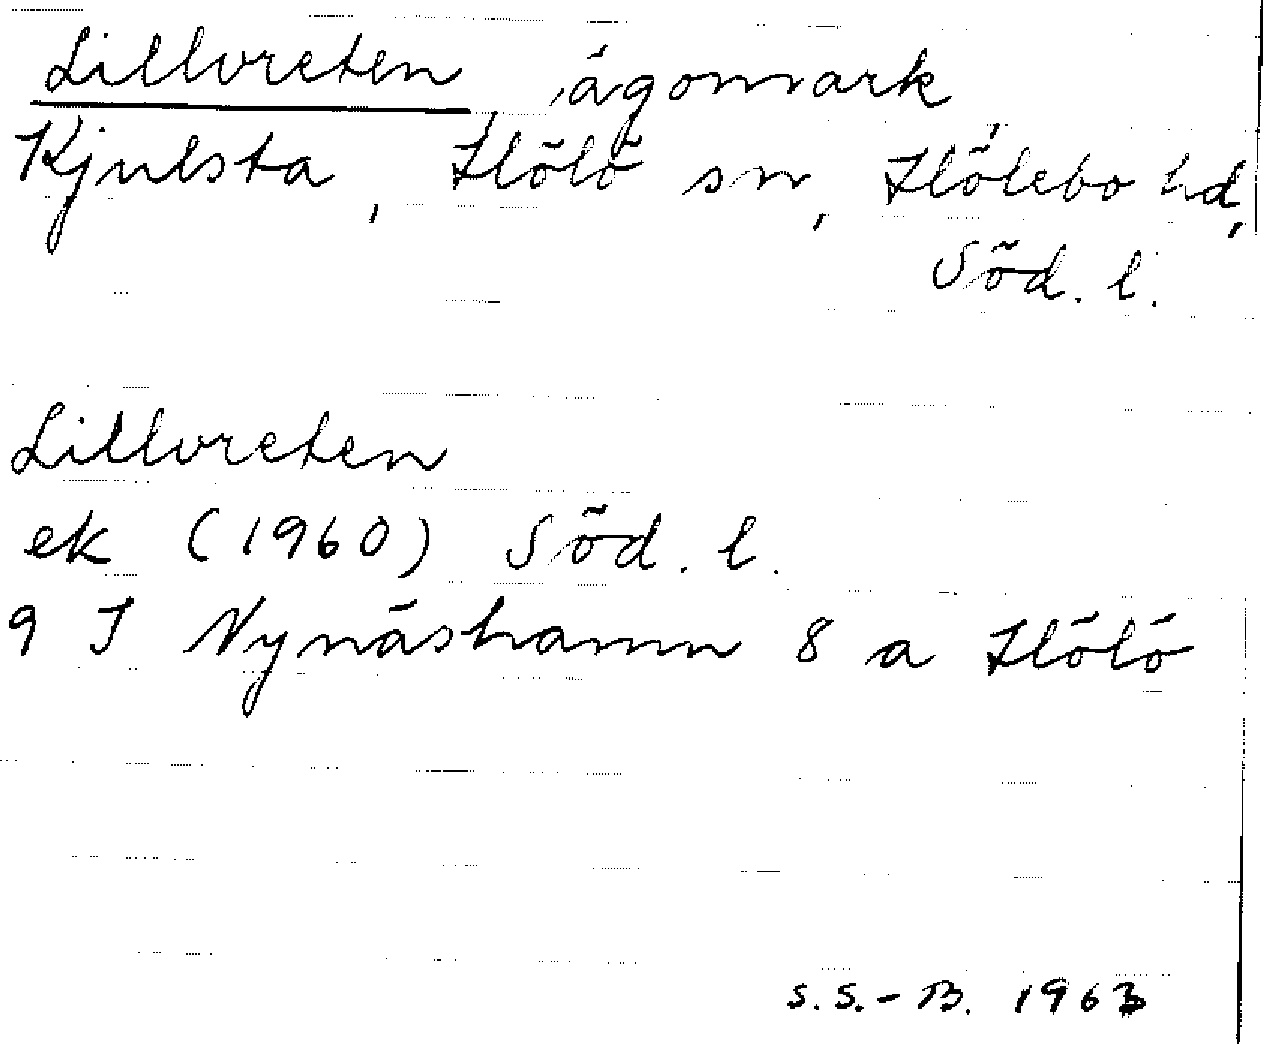 Lillvreten, ägomark,
Kjulsta, Hölö sn, Hölebo hd,
Söd. l.
Lillvreten
ek (1960) Söd. l.
9 I Nynäshamn 8 a Hölö
S.S.-B. 1963